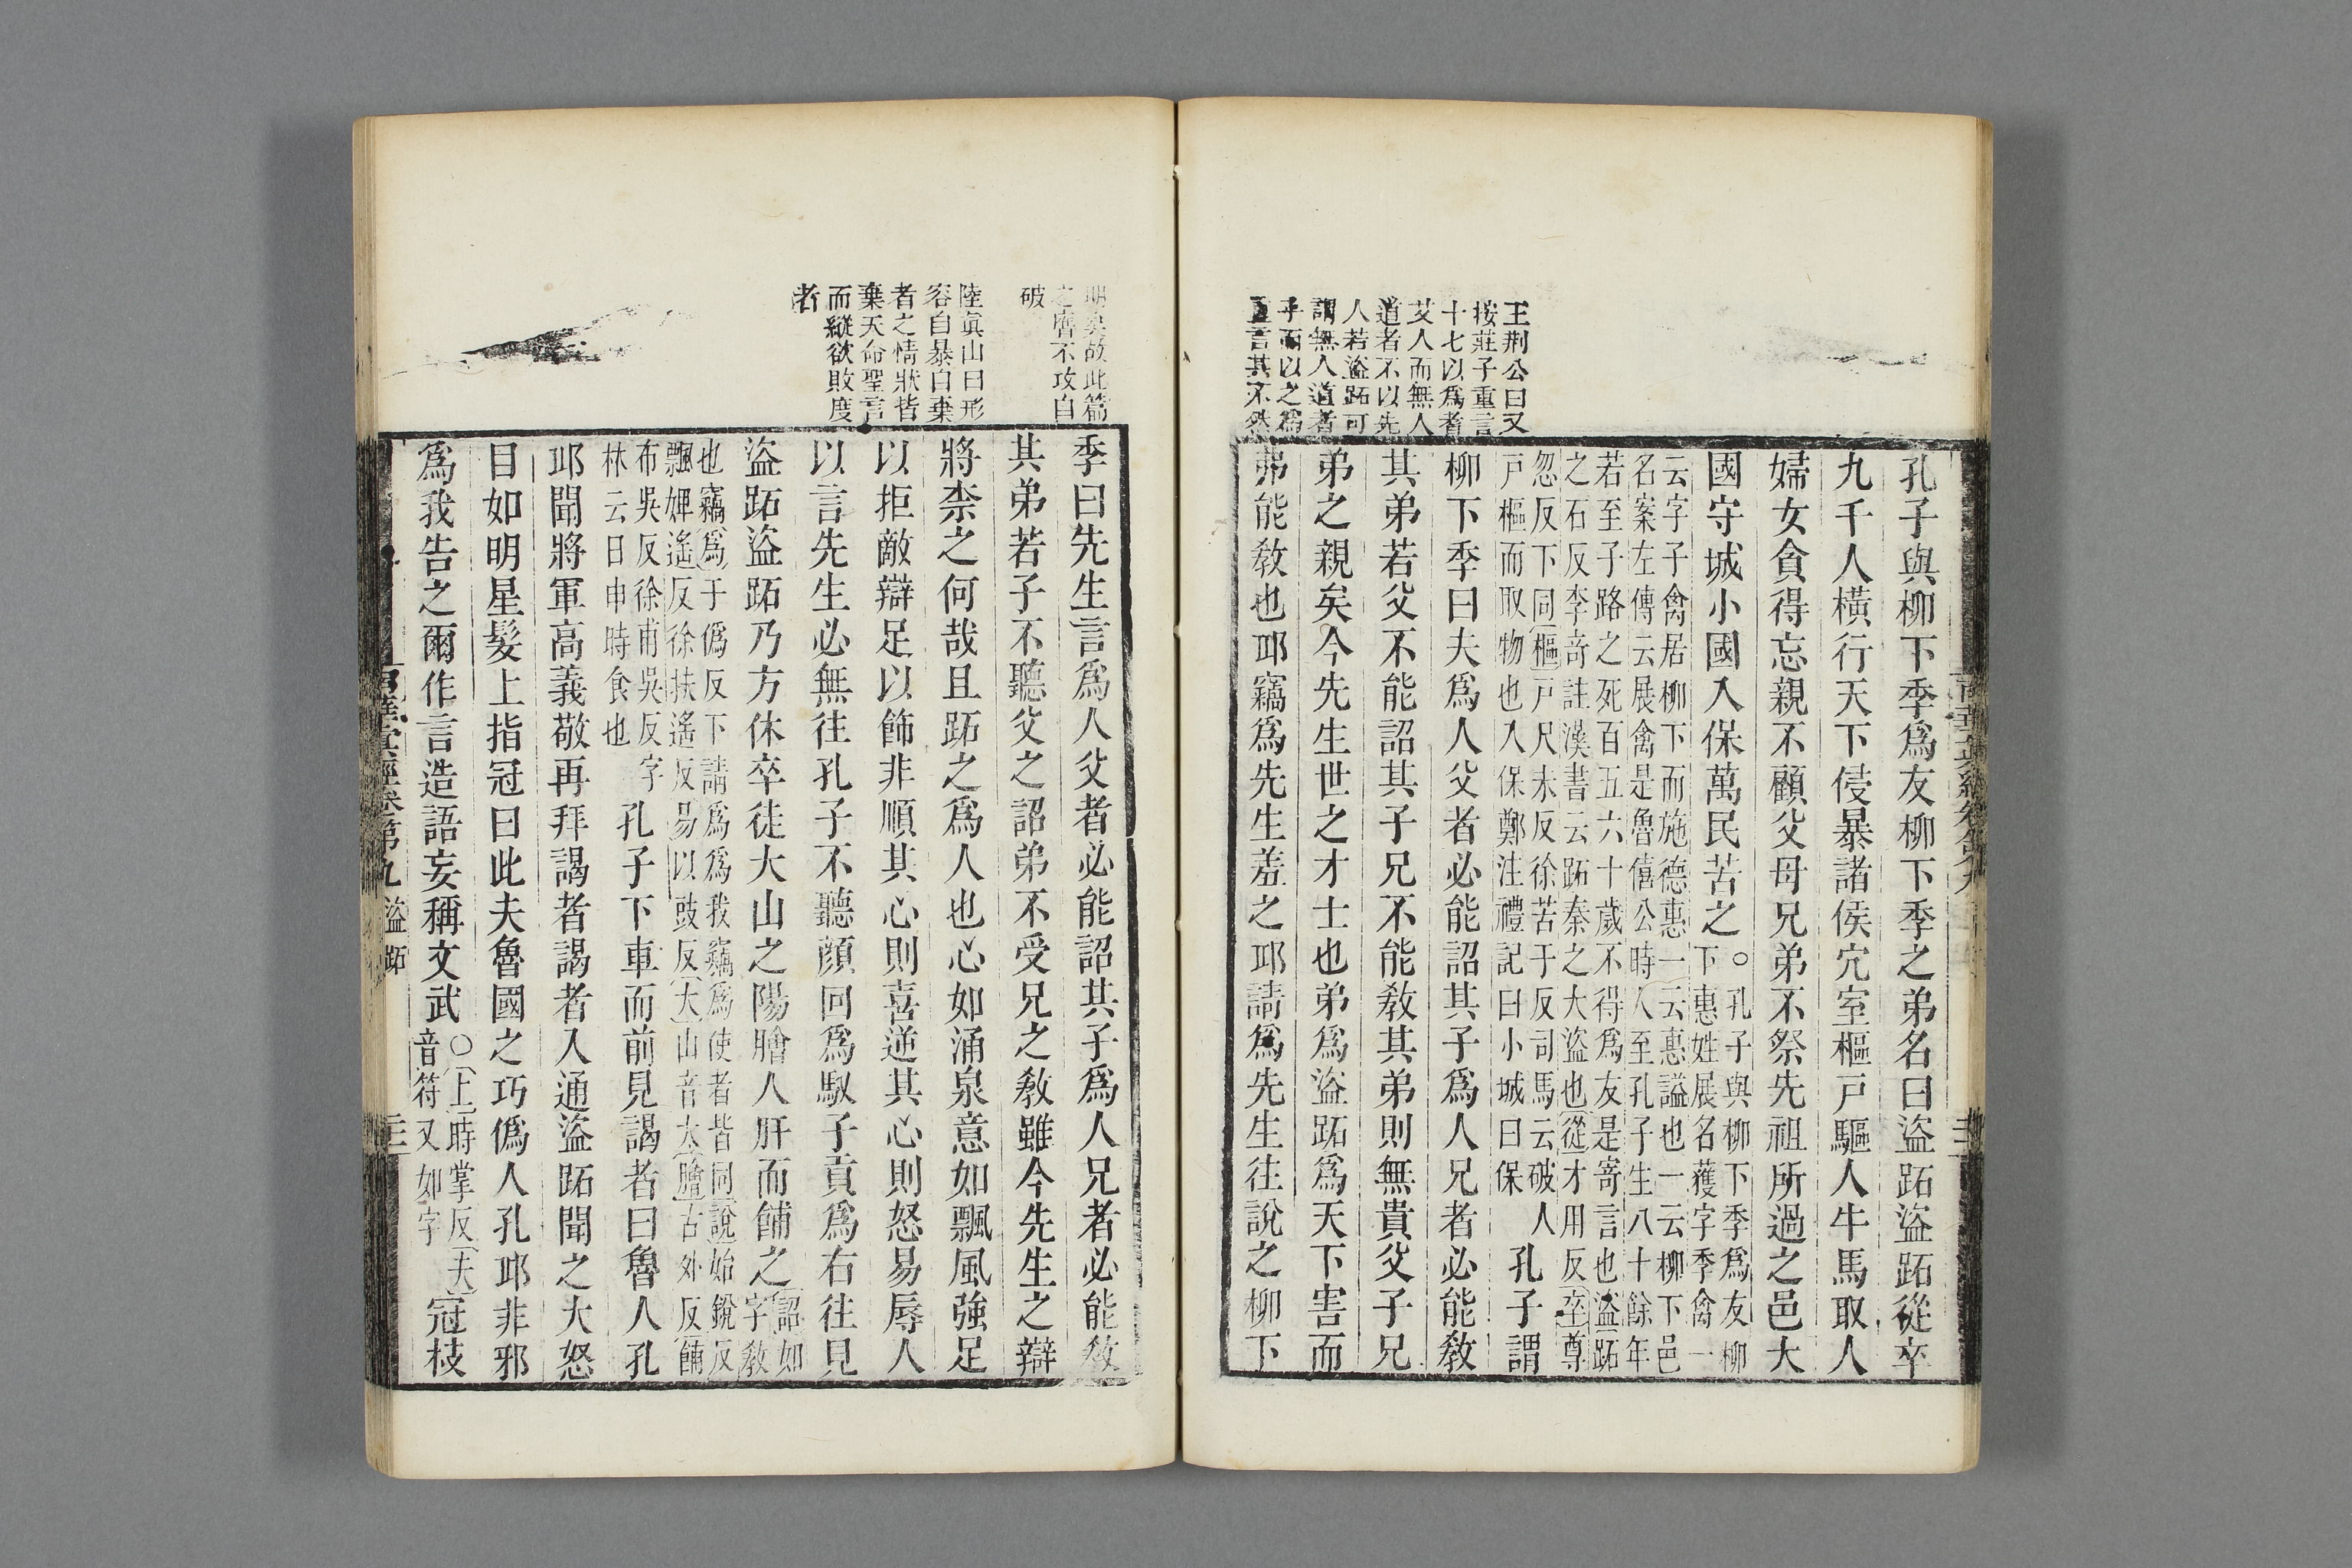 王荆公曰又
按莊子重言
十七以爲耆
艾人而無人
道者不以先
人若盜跖可
謂無人道者
乎而以之爲
重言其不然
孔子與柳下季爲友柳下季之弟名曰盜跖盜跖從卒
九千人橫行天下侵暴諸侯穴室樞戸驅人牛馬取人
婦女貪得忘親不顧父母兄弟不祭先祖所過之邑大
國守城小國入保萬民苦之○孔子與柳下季爲友柳
下惠姓展名獲字季禽一
云字子禽居柳下而施德惠一云惠謚也一云柳下邑
名案左傳云展禽是魯僖公時人至孔子生八十餘年
若至子路之死百五六十歲不得爲友是寄言也盜跖
之石反李奇註漢書云跖秦之大盜也從才用反卒尊
忽反下同樞戸尺朱反徐苦于反司馬云破人
戸樞而取物也入保鄭注禮記曰小城曰保
孔子謂
柳下季曰夫爲人父者必能詔其子爲人兄者必能敎
其弟若父不能詔其子兄不能敎其弟則無貴父子兄
弟之親矣今先生世之才士也弟爲盜跖爲天下害而
弗能敎也邱竊爲先生羞之邱請爲先生往說之柳下
故此篇
之膺不攻自
破
陸眞山曰形
容自暴自棄
者之情狀皆
棄天命聖言
而縱欲敗度
者
季曰先生言爲人父者必能詔其子爲人兄者必能敎
其弟若子不聽父之詔弟不受兄之敎雖今先生之辯
將柰之何哉且跖之爲人也心如涌泉意如飄風強足
以拒敵辯足以飾非順其心則喜逆其心則怒易辱人
以言先生必無往孔子不聽顏回爲馭子貢爲右往見
盜跖盜跖乃方休卒徒大山之陽膾人肝而餔之詔如
字敎
也竊爲于僞反下請爲爲我竊爲使者皆同說始銳反
飄婢遙反徐扶遙反易以豉反大山音太膾古外反餔
布吳反徐甫吳反字
林云日申時食也
孔子下車而前見謁者曰魯人孔
邱聞將軍高義敬再拜謁者謁者入通盜跖聞之大怒
目如明星髮上指冠曰此夫魯國之巧僞人孔邱非邪
爲我告之爾作言造語妄稱文武○上時掌反夫
音符又如字
冠枝
堂經卷第九 盜跖 三